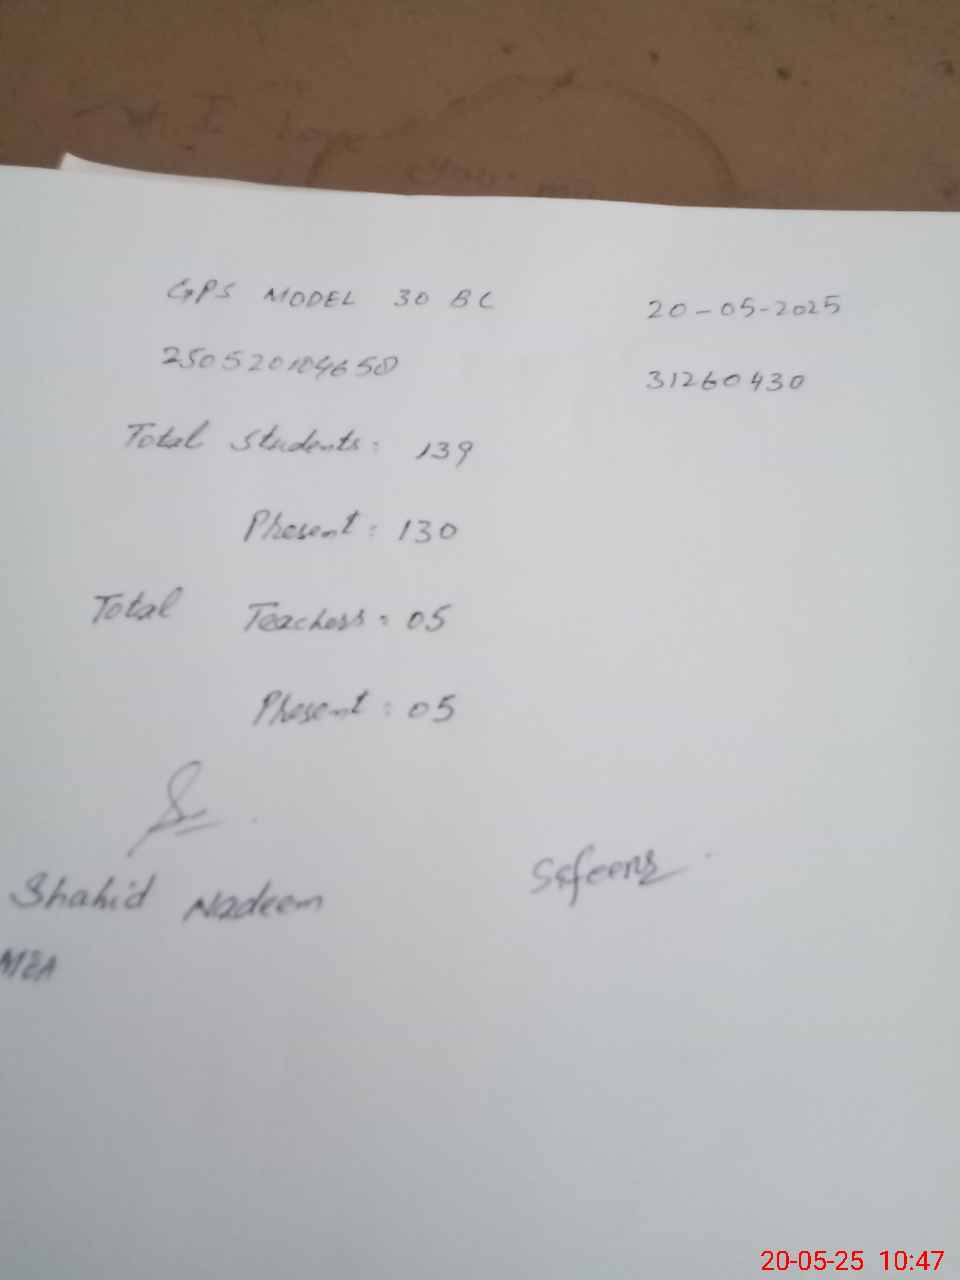 GPS MODEL 30 BC 20-05-2025
250520104650 31260430
Total Students: 139
Present: 130
Total Teachers: 05
Present: 05
Shahid Nadeem
MEA
20-05-25 10:47